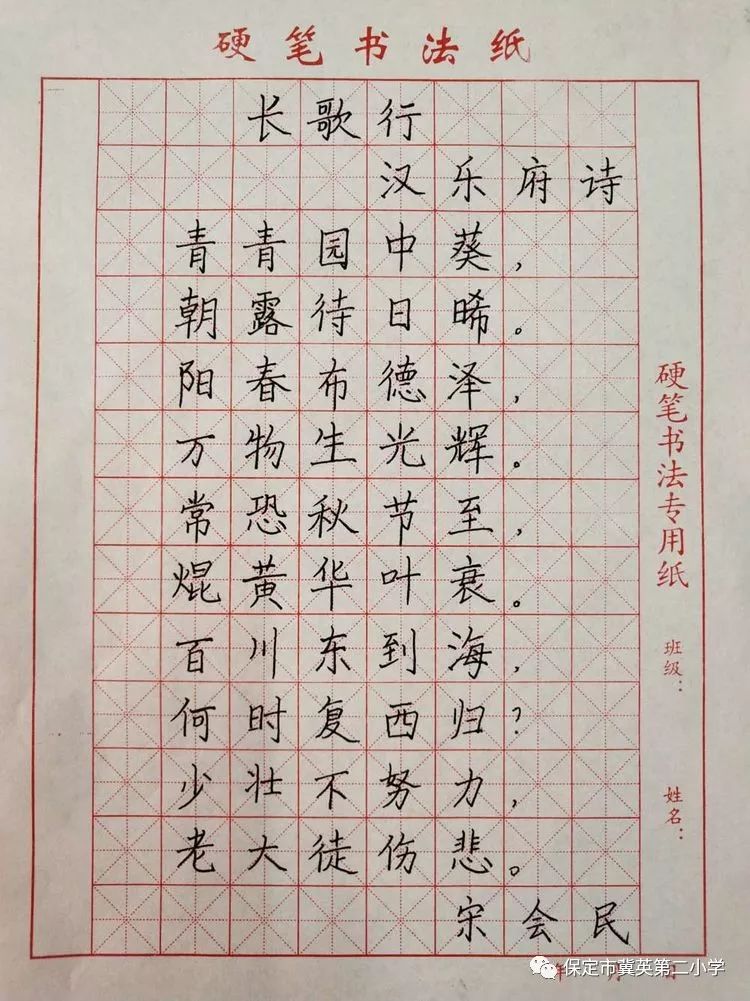 硬笔书法纸
长歌行
汉乐府诗
青青园中葵，
朝露待日晞。
阳春布德泽，
万物生光辉。
常恐秋节至，
焜黄华叶衰。
百川东到海，
何时复西归？
少壮不努力，
老大徒伤悲。
宋会民
硬笔书法专用纸
班级：
姓名：
年
保定市冀英第二小学